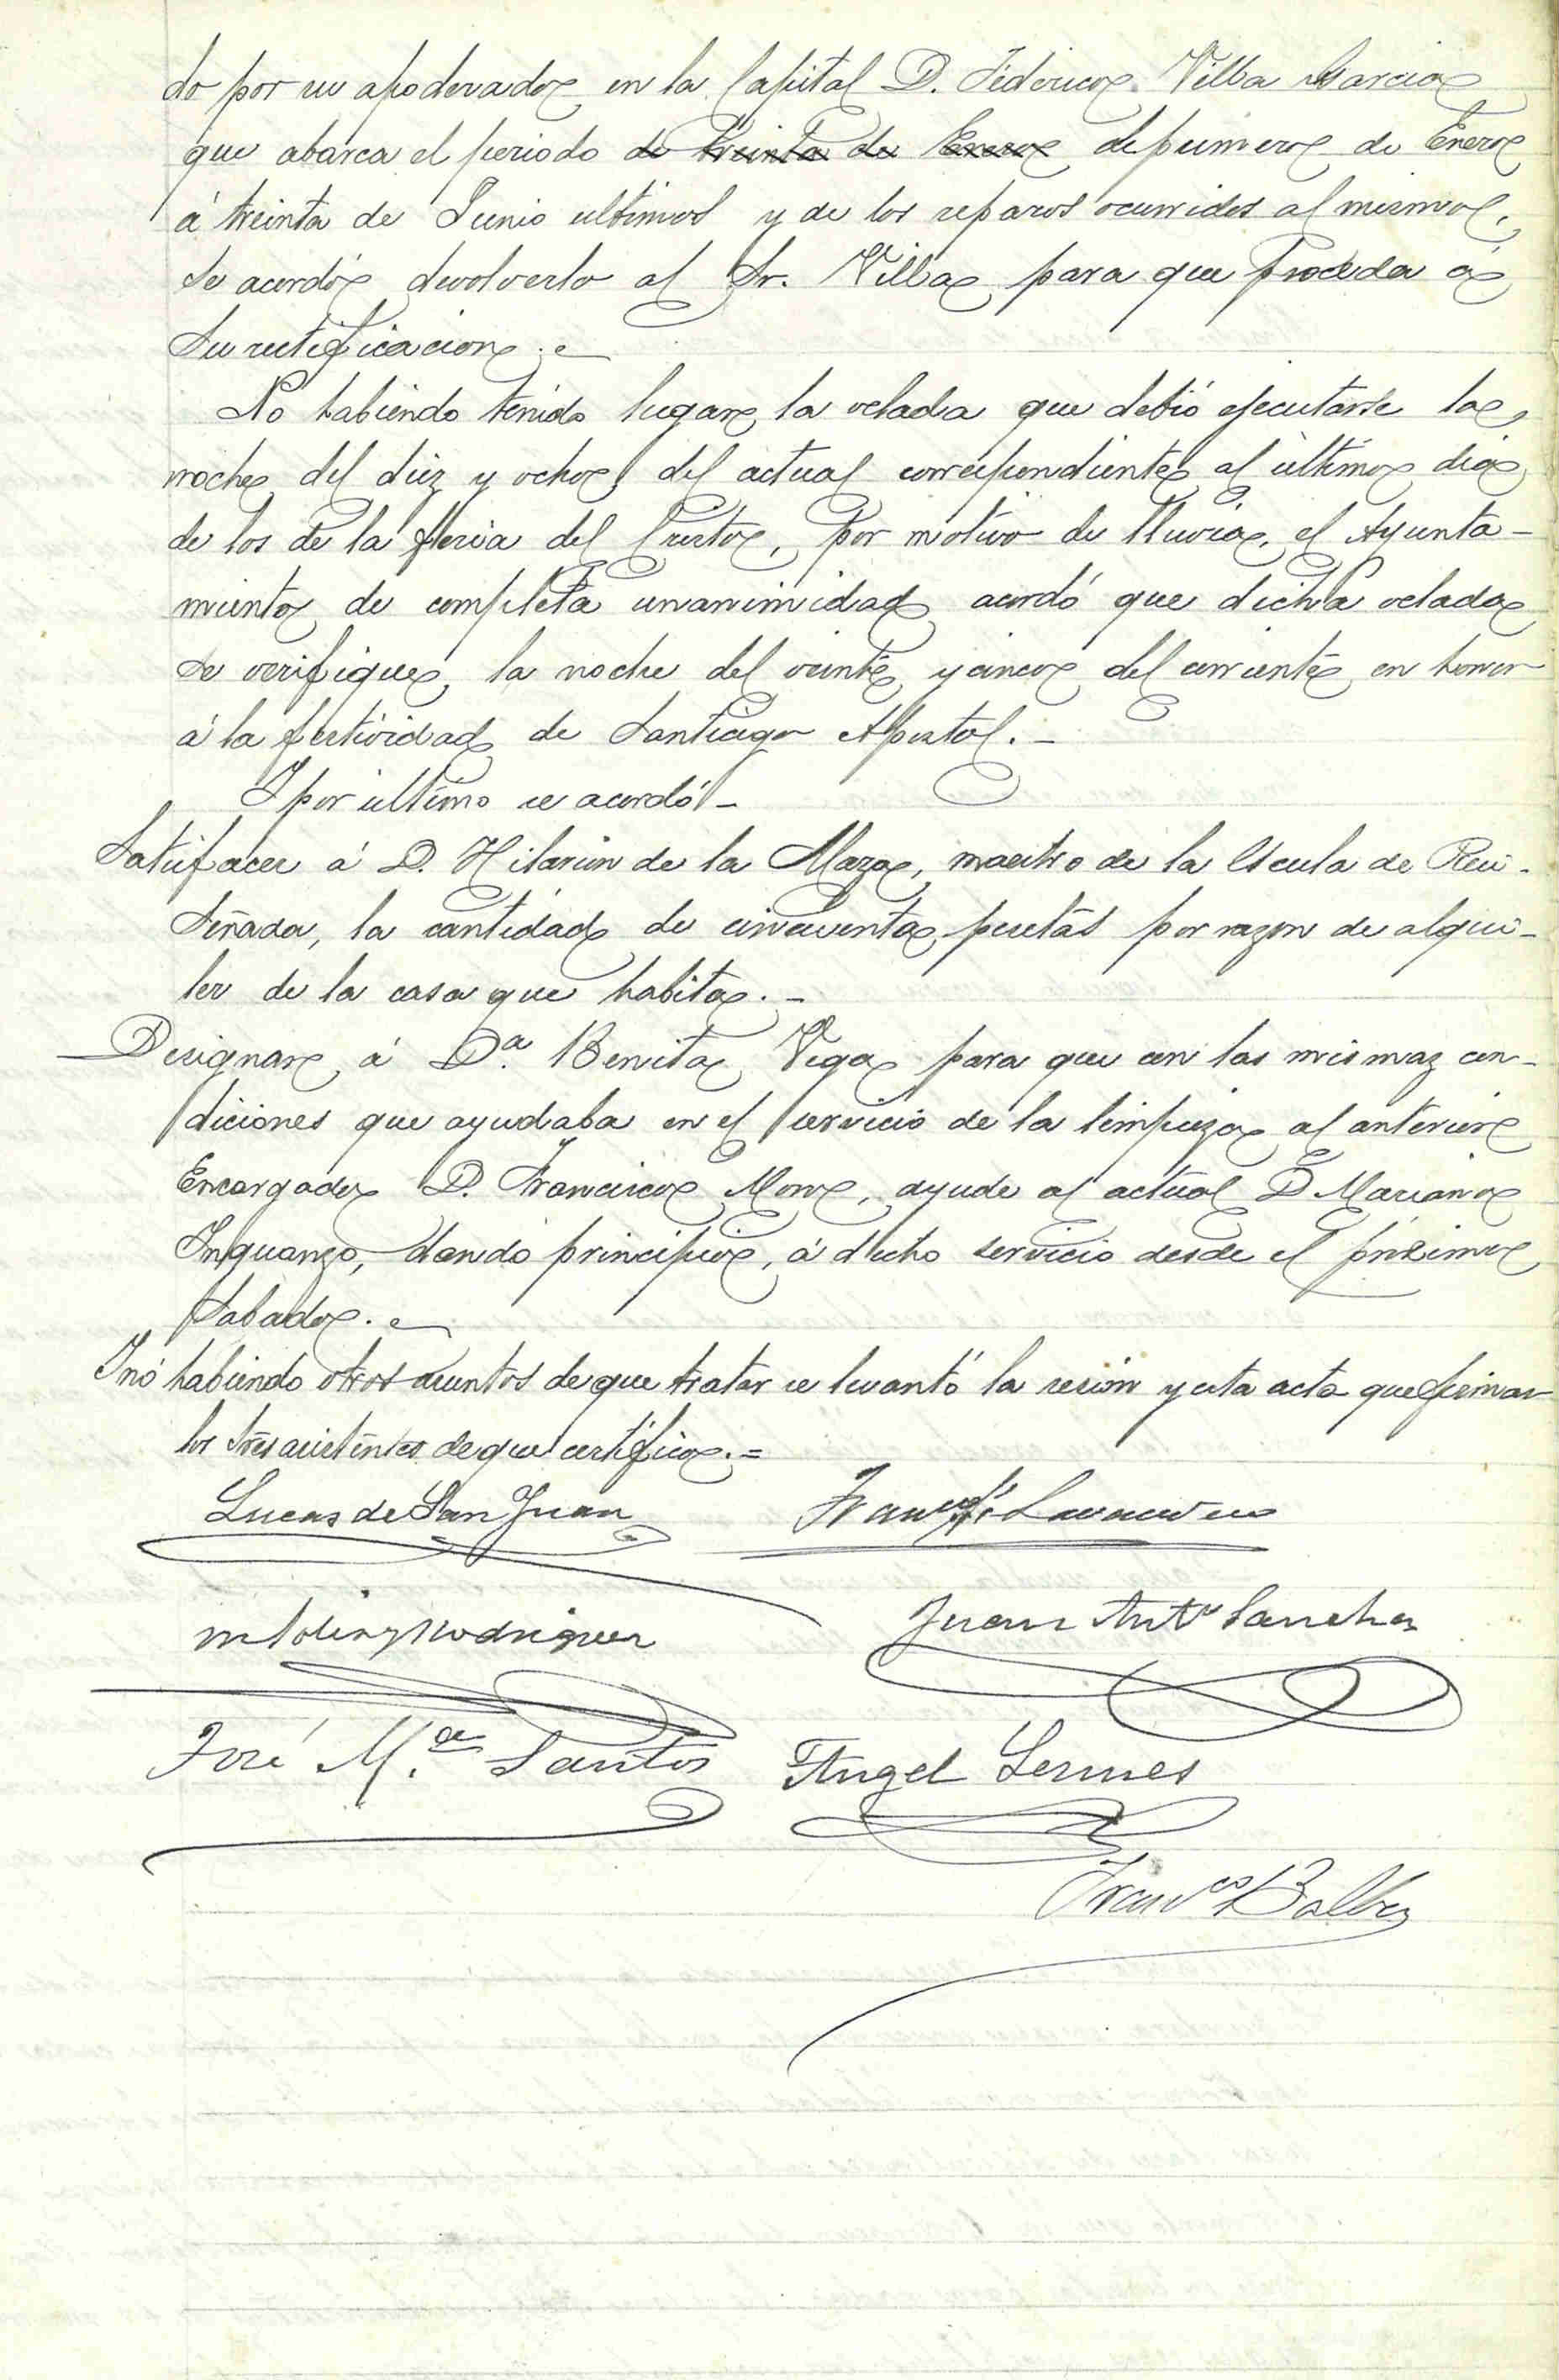 do por su apoderado en la Capital D. Federico Villa Garcia
que abarca el periodo de treinta de Enero de primero de Enero
á treinta de Junio ultimos y de los reparos ocurridos al mismo,
se acordó devolverlo al Sr. Villa para que proceda á
su rectificacion.
No habiendo tenido lugar la velada que debió ejecutarse la
noche del diez y ocho del actual correspondiente al último dia
de los de la feria del Cristo, por motivo de lluvia, el Ayunta-
miento de completa unanimidad acordó que dicha velada
se verifique la noche del veinte y cinco del corriente en honor
á la festividad de Santiago Apostol.-
Y por último se acordó-
Satisfacer á D. Hilarion de la Maza, maestro de la Escuela de Peñ-
señada, la cantidad de cincuenta pesetas por razon de alqui-
ler de la casa que habita.-
Designar á Dª. Benita Vega para que con las mismaz con-
diciones que ayudaba en el servicio de la limpieza al anterior
Encargado D. Francisco Mone, ayude al actual D Mariano
Inguanzo, dando principio, á dicho servicio desde el próximo
Sabado.
Y nó habiendo otros asuntos de que tratar se levantó la sesión y esta acta que firman
los Sres asistentes de que certifico.=
Lucas de San Juan
Rodriguez Juan Antº Sanchez
José M.ª Santos Angel Lermes
Franco Balbes